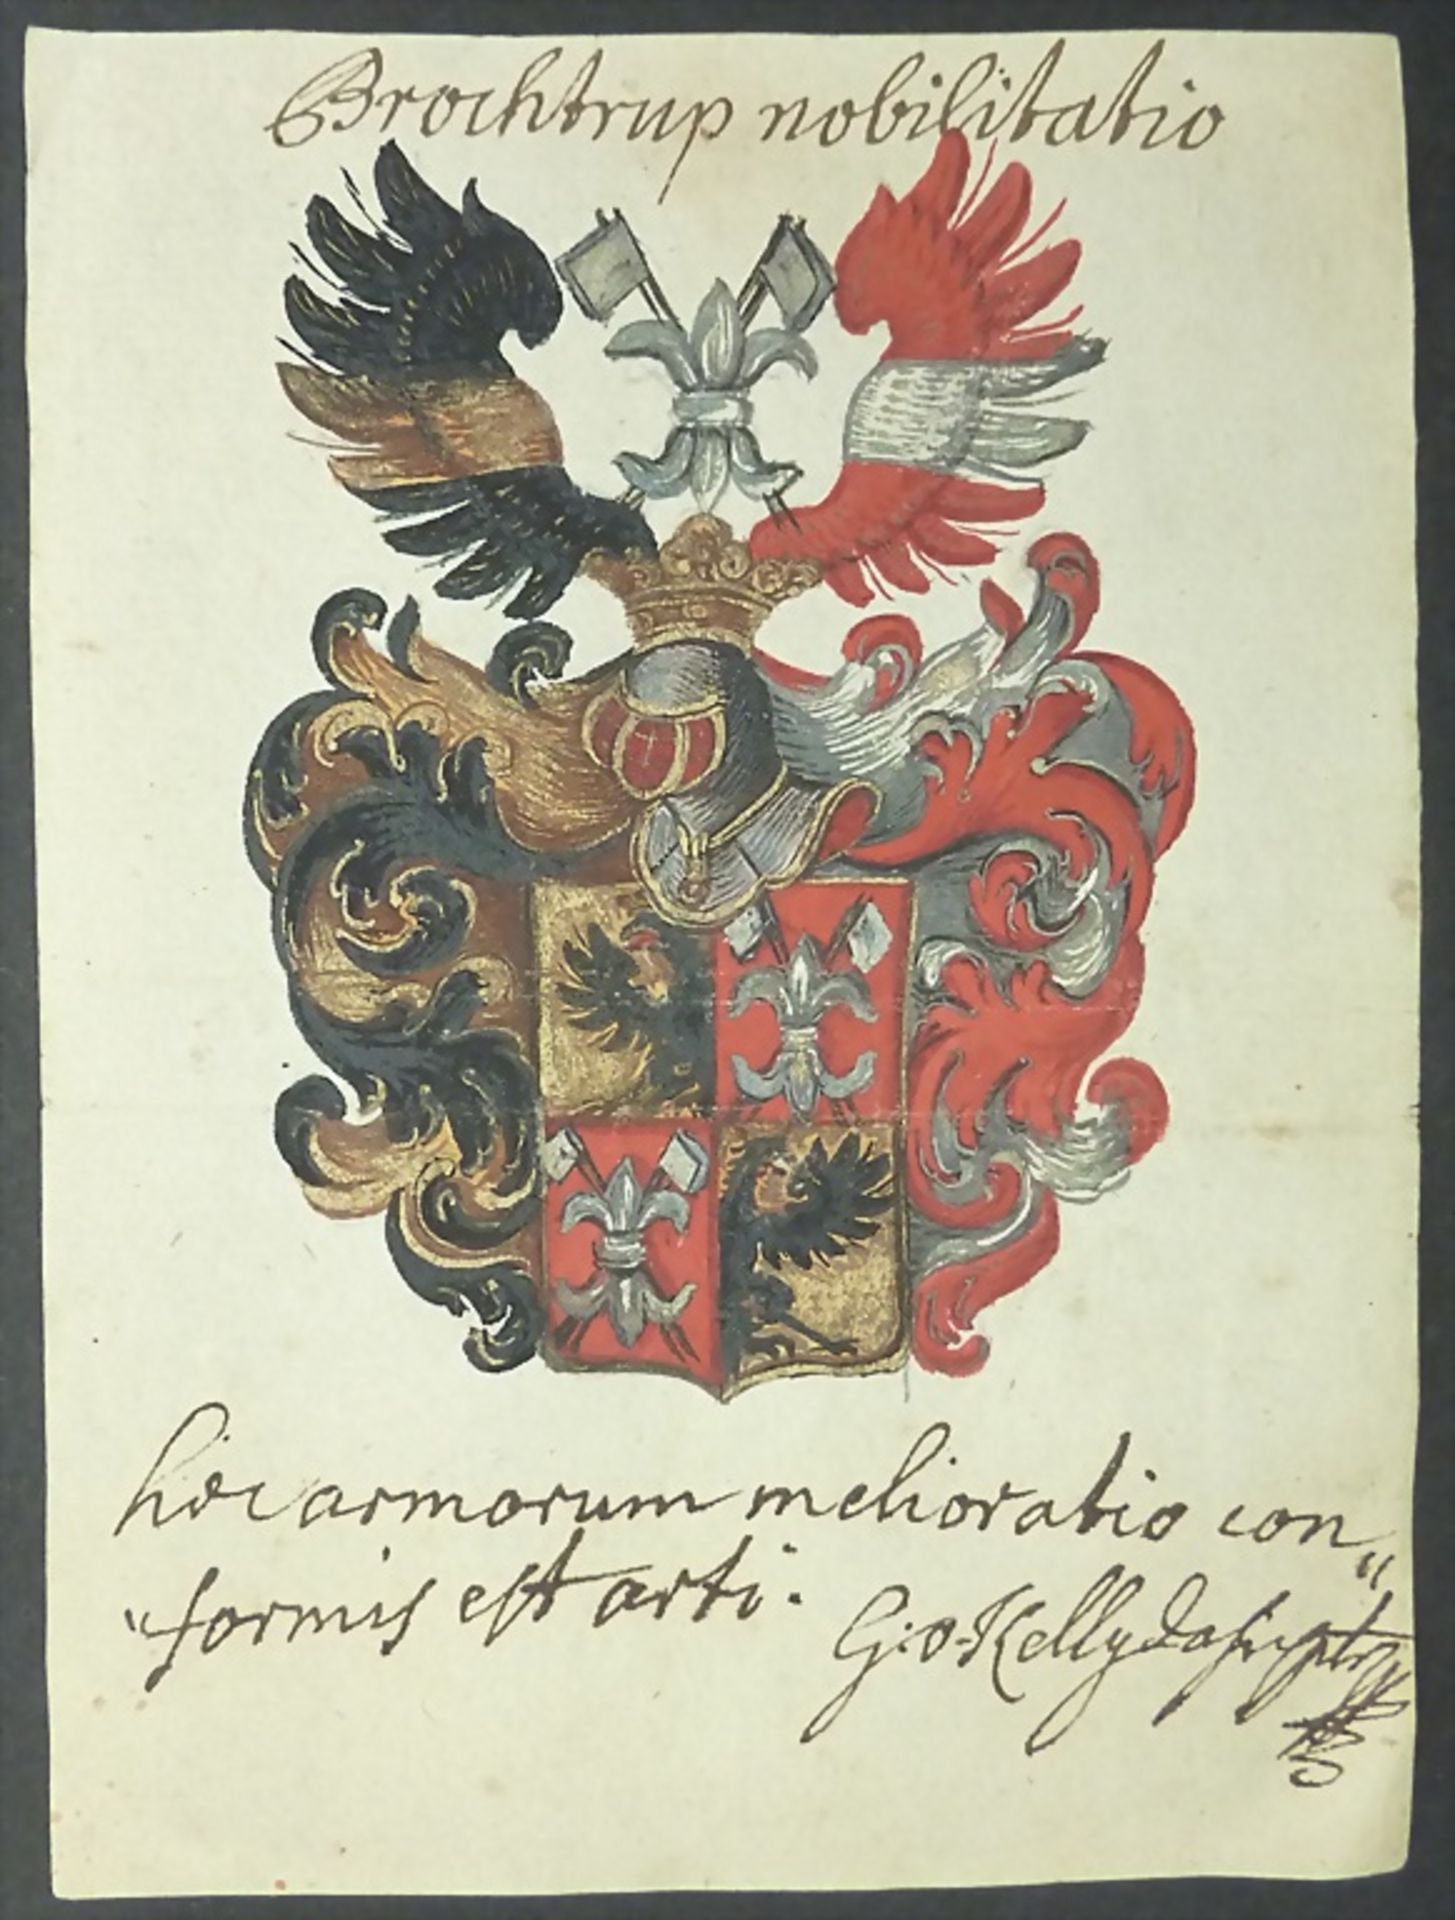 Brochtrup nobilitatio
hæc armorum melioratio con„
“formis est arti.
G: o-Kelly